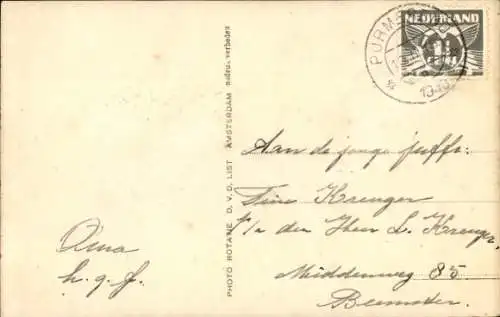 NEDERLAND
PURMEREND
1943
PHOTO ROTANE D. V. D. LIST AMSTERDAM nadruk verboden
Aan de jonge juffr:
Trini Kreuger
p/a den Heer L. Kreuger,
Middenweg 85
Beemster.
Oma
h. g. f.